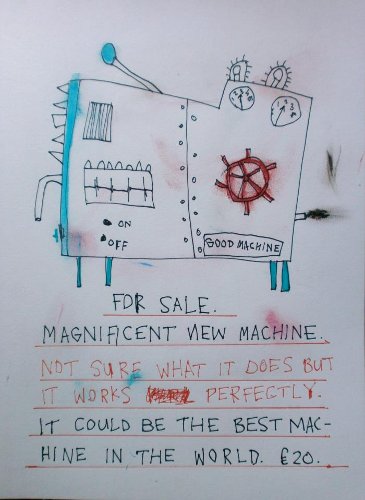 ON
OFF
GOOD MACHINE
FOR SALE.
MAGNIFICENT NEW MACHINE.
NOT SURE WHAT IT DOES BUT
IT WORKS PERFECTLY.
IT COULD BE THE BEST MAC-
HINE IN THE WORLD. £20.